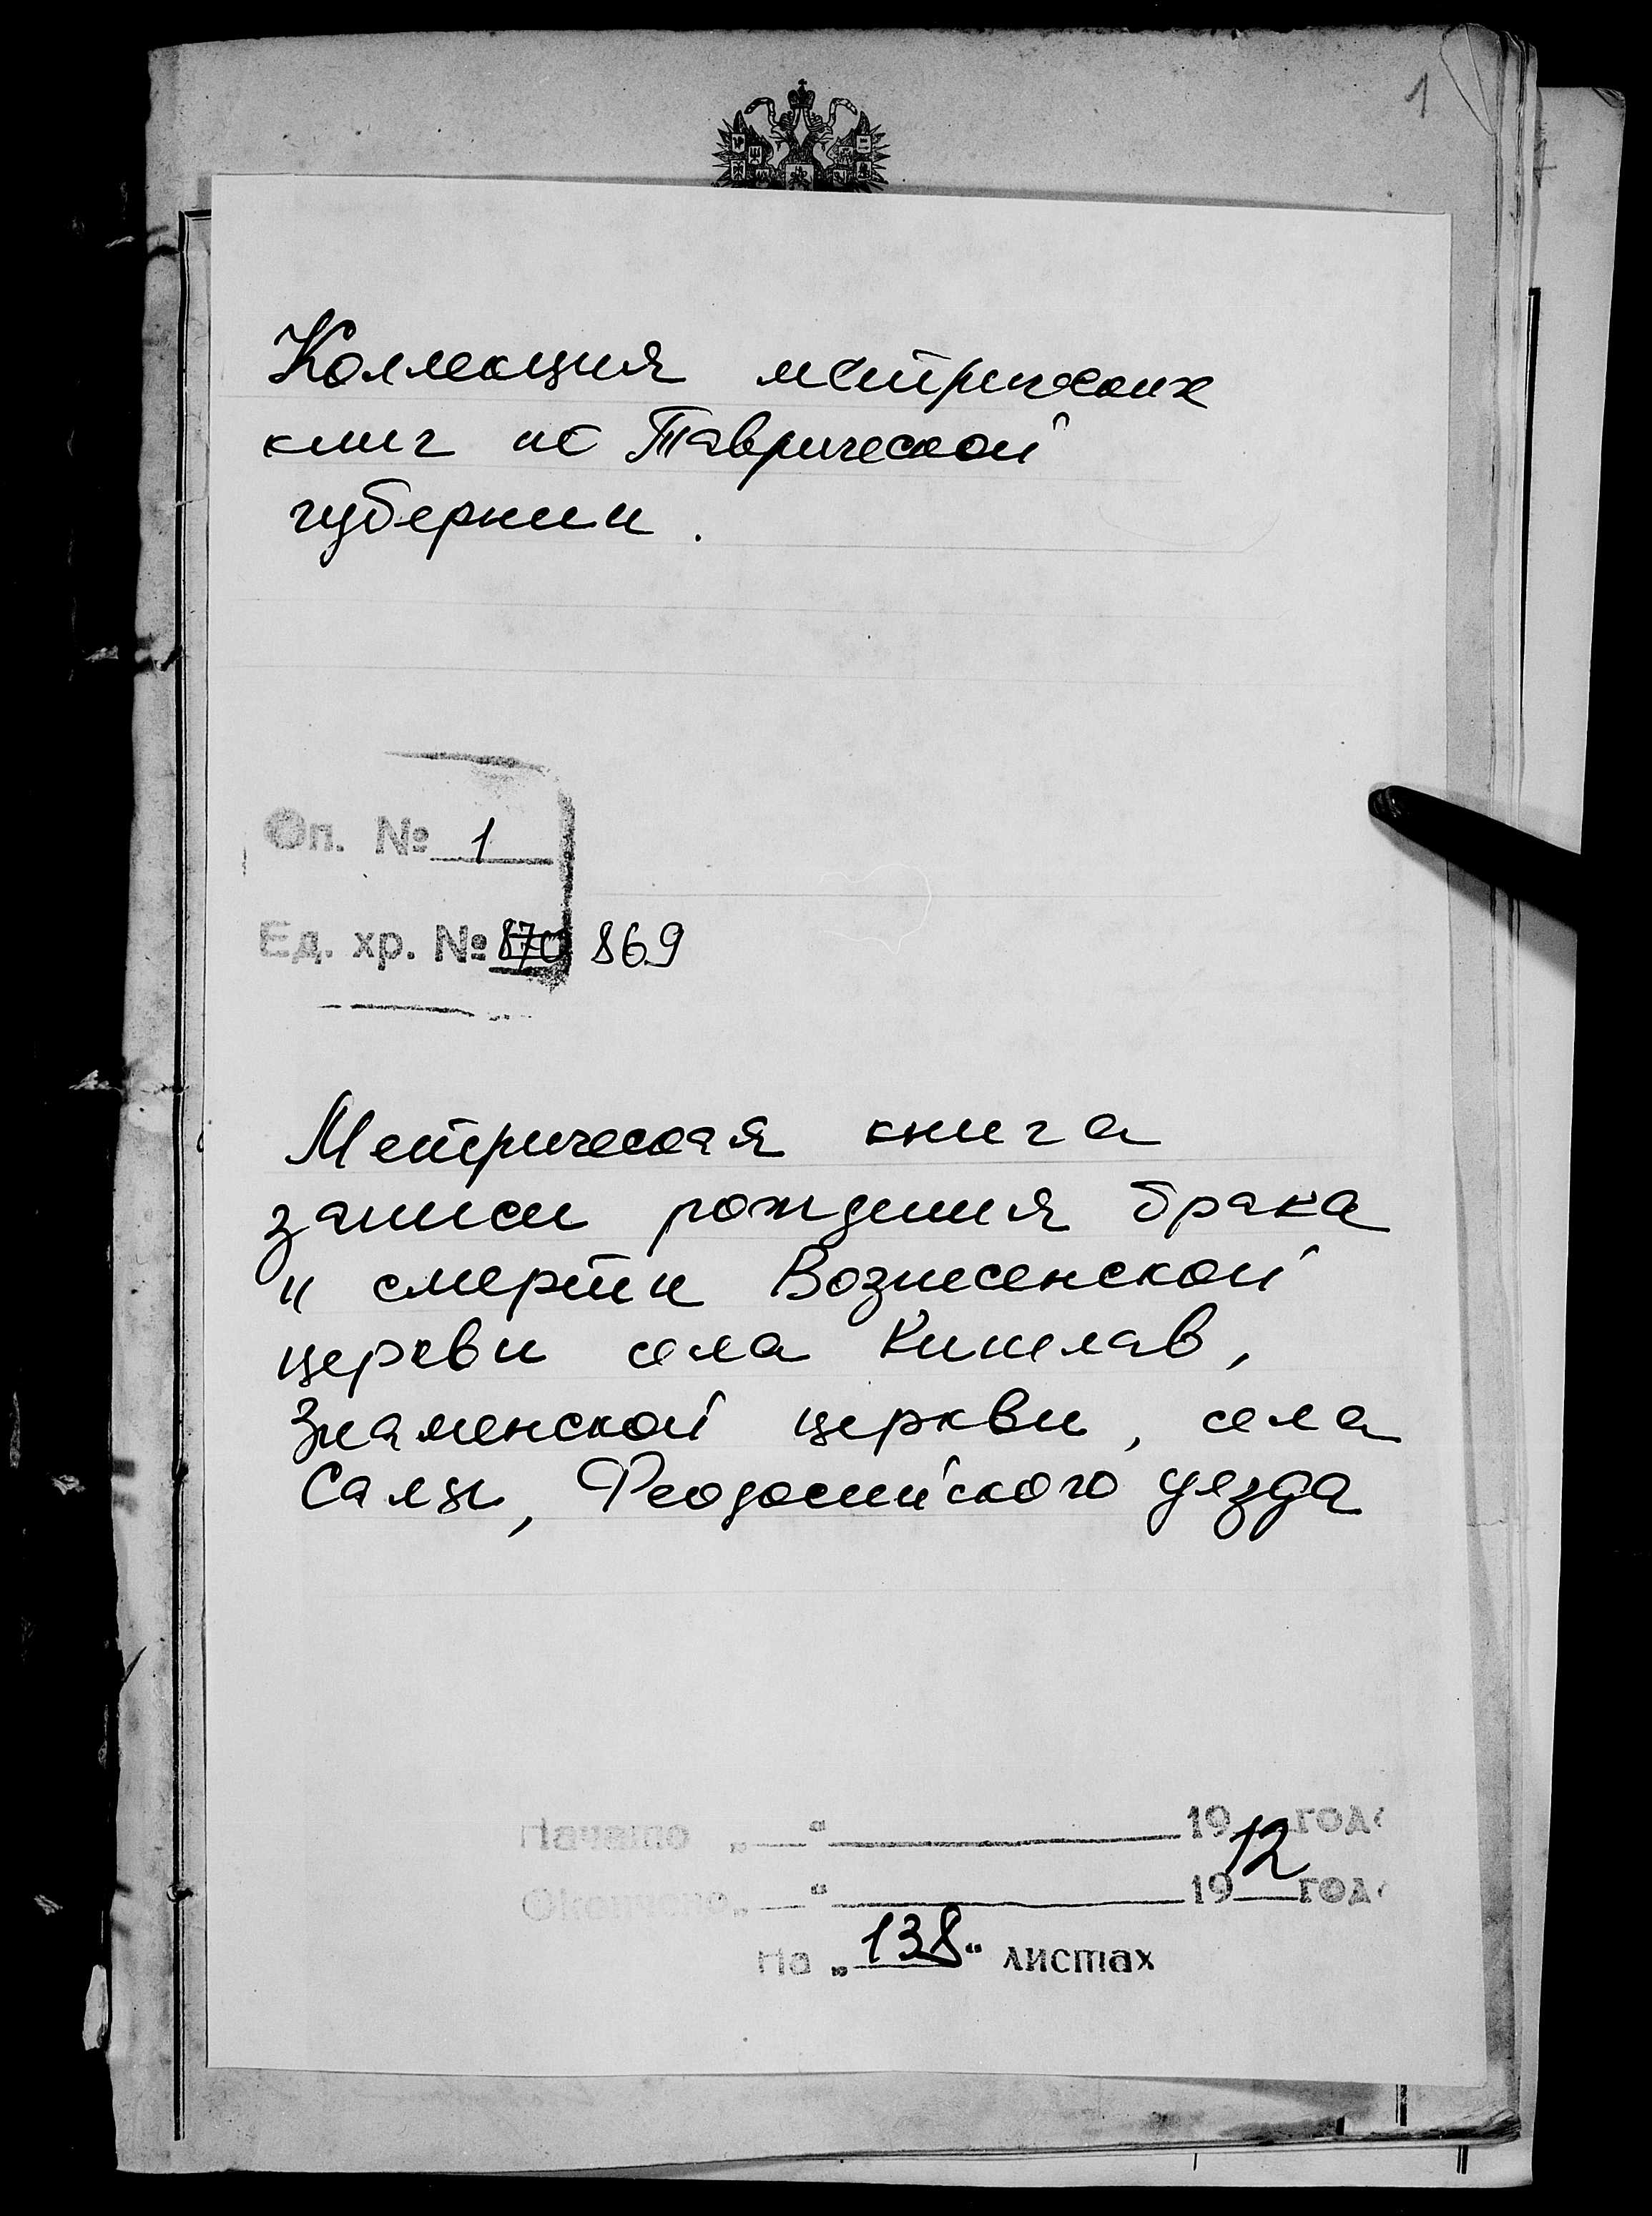 1
Коллекция метрических
книг по Таврической
губернии.
Оп. № 1
Ед. хр. № 870 869
Метрическая книга
записи рождения брака
и смерти Вознесенской
церкви села Кишлав,
Знаменской церкви, села
Салы, Феодосийского уезда
Начато „__“ 19 год
Окончено „__“ 1912 год
На „138“ листах